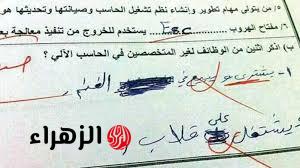 ٥) من يتولى مهام تطوير وإنشاء نظم تشغيل الحاسب وصيانتها وتحديثها هو
٦) مفتاح الهروب Esc يستخدم للخروج من تنفيذ معالجة
ب) اذكر اثنين من الوظائف لغير المتخصصين في الحاسب الآلي ؟
١- يشتري و
الفيلم
ويشتغل على قلاب
الزهراء